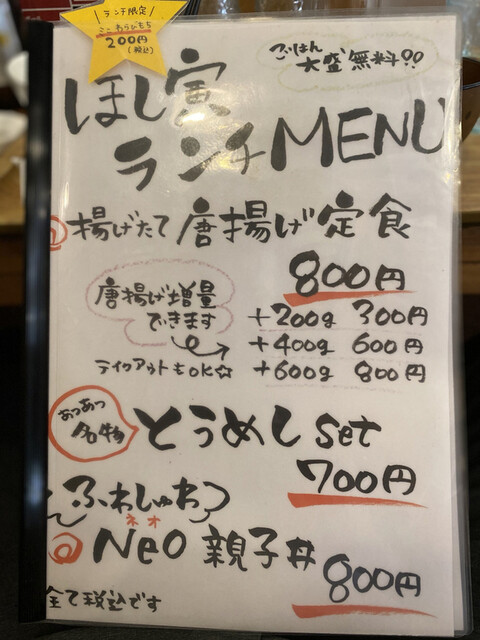 ランチ限定
ミニわらびもち
200円
(税込)
ごはん
大盛無料!!
ほし寅
ランチMENU
揚げたて唐揚げ定食
800円
唐揚げ増量
できます
+200g 300円
+400g 600円
テイクアウトもOK☆
+600g 800円
あつあつ
名物
とうめしset
700円
ふわしゅわ
ネオ
Neo親子丼
800円
全て税込です